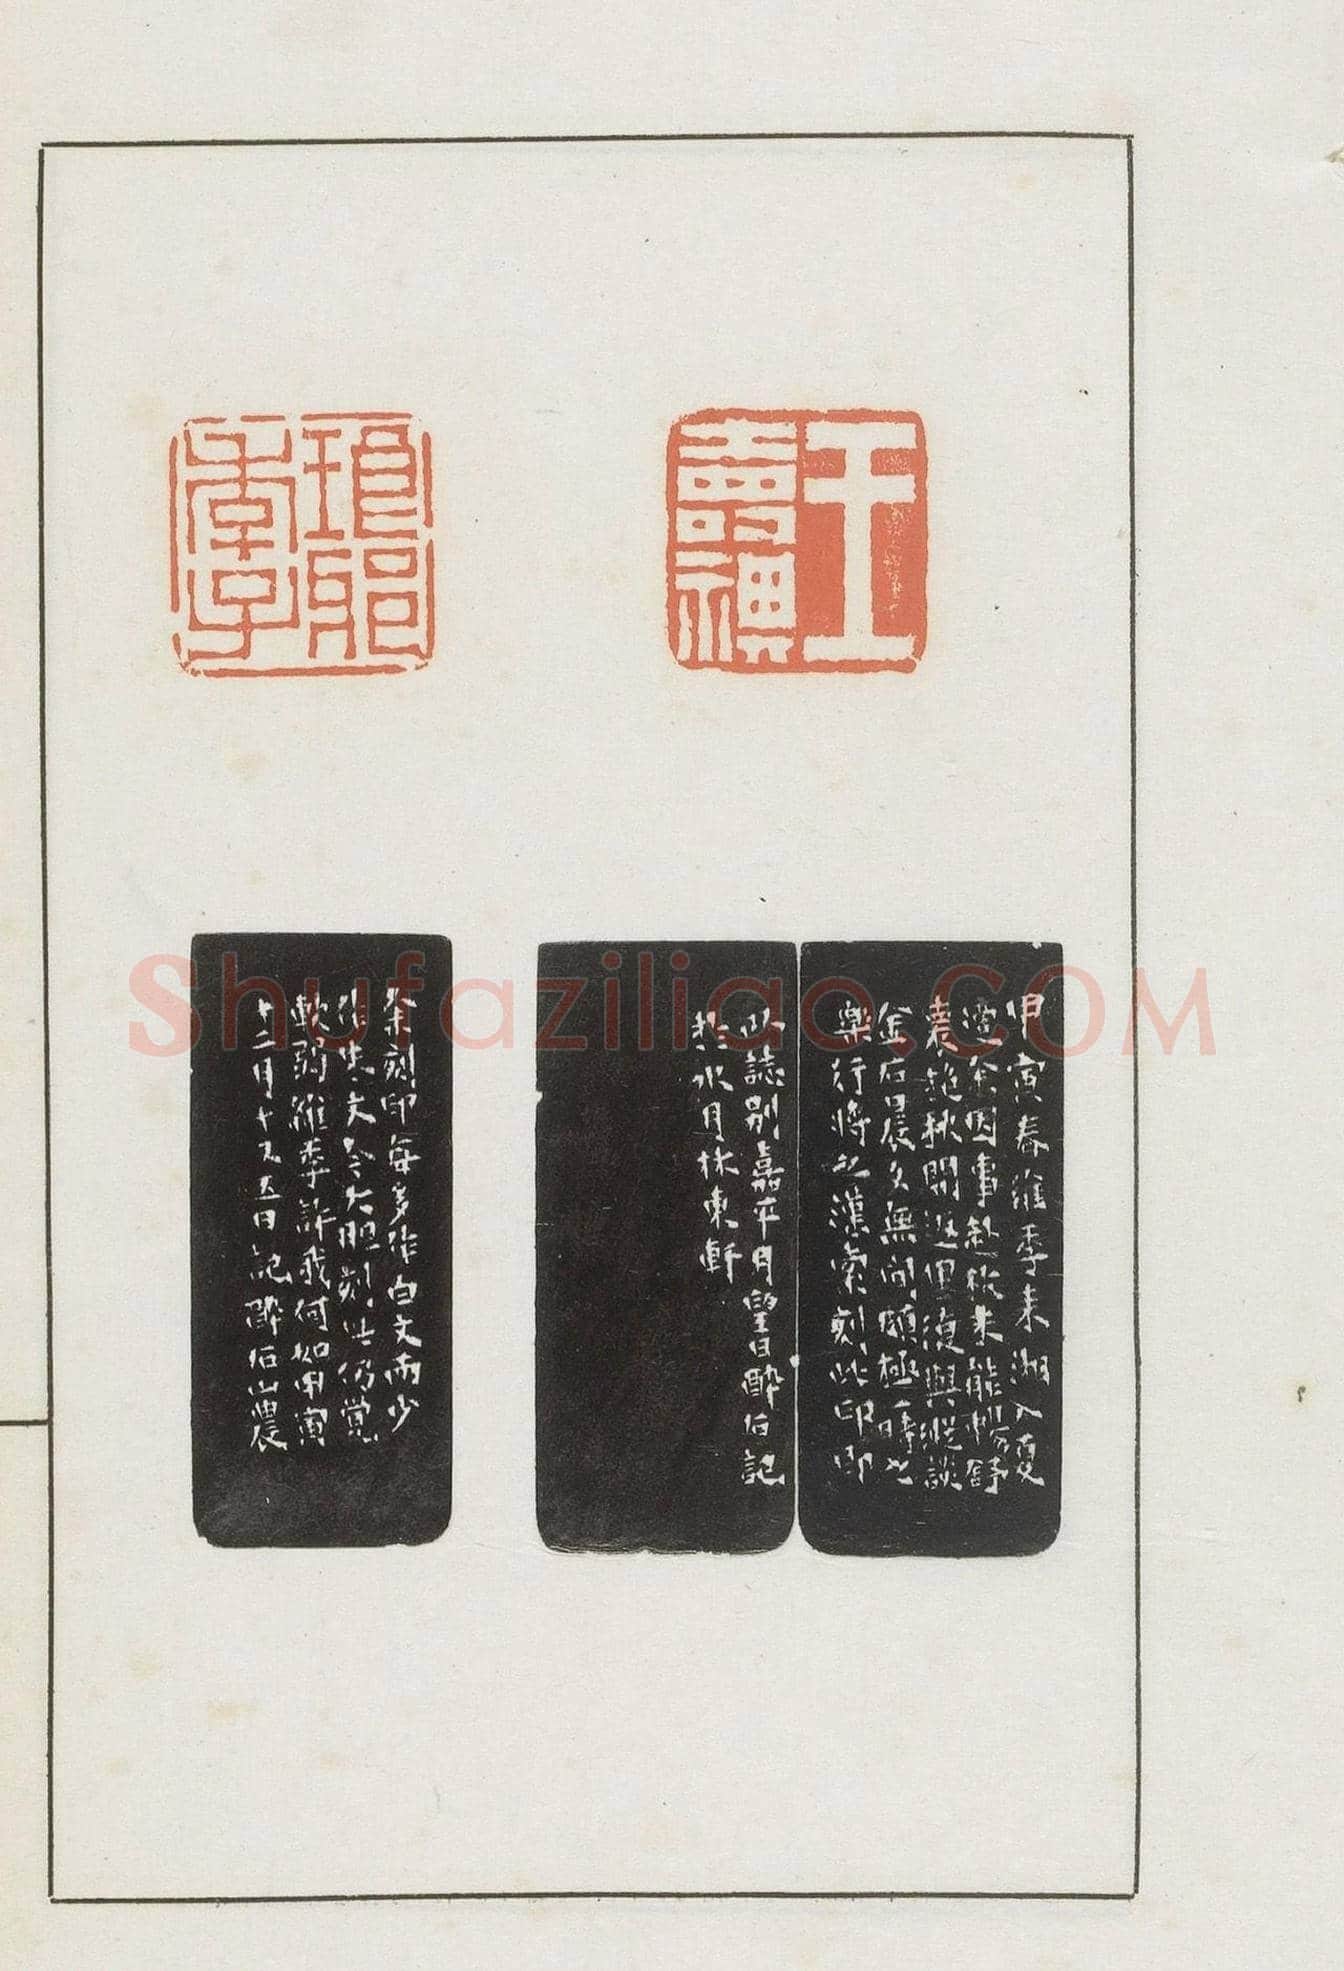 王
壽祺
維季
甲寅春維季來湖入夏
余因事赴杭未能暢舒
秋間返里復與縱談
金石晨夕無間頗極一時之
樂行將之漢索刻此印即
此誌別嘉平月望日醉石記
於水月林東軒
余刻印每多作白文而少
作朱文今大胆刻此仍覺
軟弱維季許我何如甲寅
十二月十又五日記醉石山農
Shufaziliao.COM